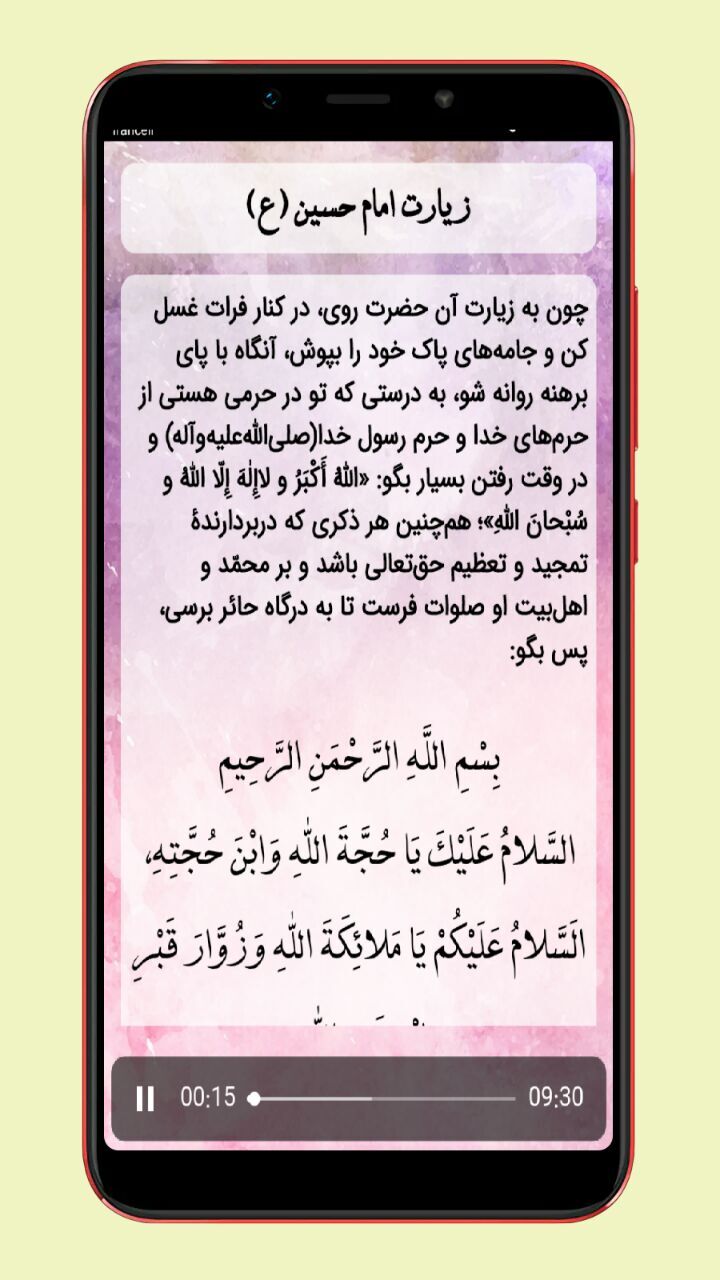 زیارت امام حسین (ع)
چون به زیارت آن حضرت روی، در کنار فرات غسل
کن و جامه‌های پاک خود را بپوش، آنگاه با پای
برهنه روانه شو، به درستی که تو در حرمی هستی از
حرم‌های خدا و حرم رسول خدا(صلی‌الله‌علیه‌وآله) و
در وقت رفتن بسیار بگو: «اللهُ أَكْبَرُ و لاإِلٰهَ إِلّا اللهُ و
سُبْحانَ اللهِ»؛ هم‌چنین هر ذکری که دربردارندهٔ
تمجید و تعظیم حق‌تعالی باشد و بر محمّد و
اهل‌بیت او صلوات فرست تا به درگاه حائر برسی،
پس بگو:
بِسْمِ اللَّهِ الرَّحْمَنِ الرَّحِيمِ
السَّلامُ عَلَيْكَ يَا حُجَّةَ اللهِ وَابْنَ حُجَّتِهِ،
الَسَّلامُ عَلَيْكُمْ يَا مَلائِكَةَ اللهِ وَزُوَّارَ قَبْرِ
00:15 09:30